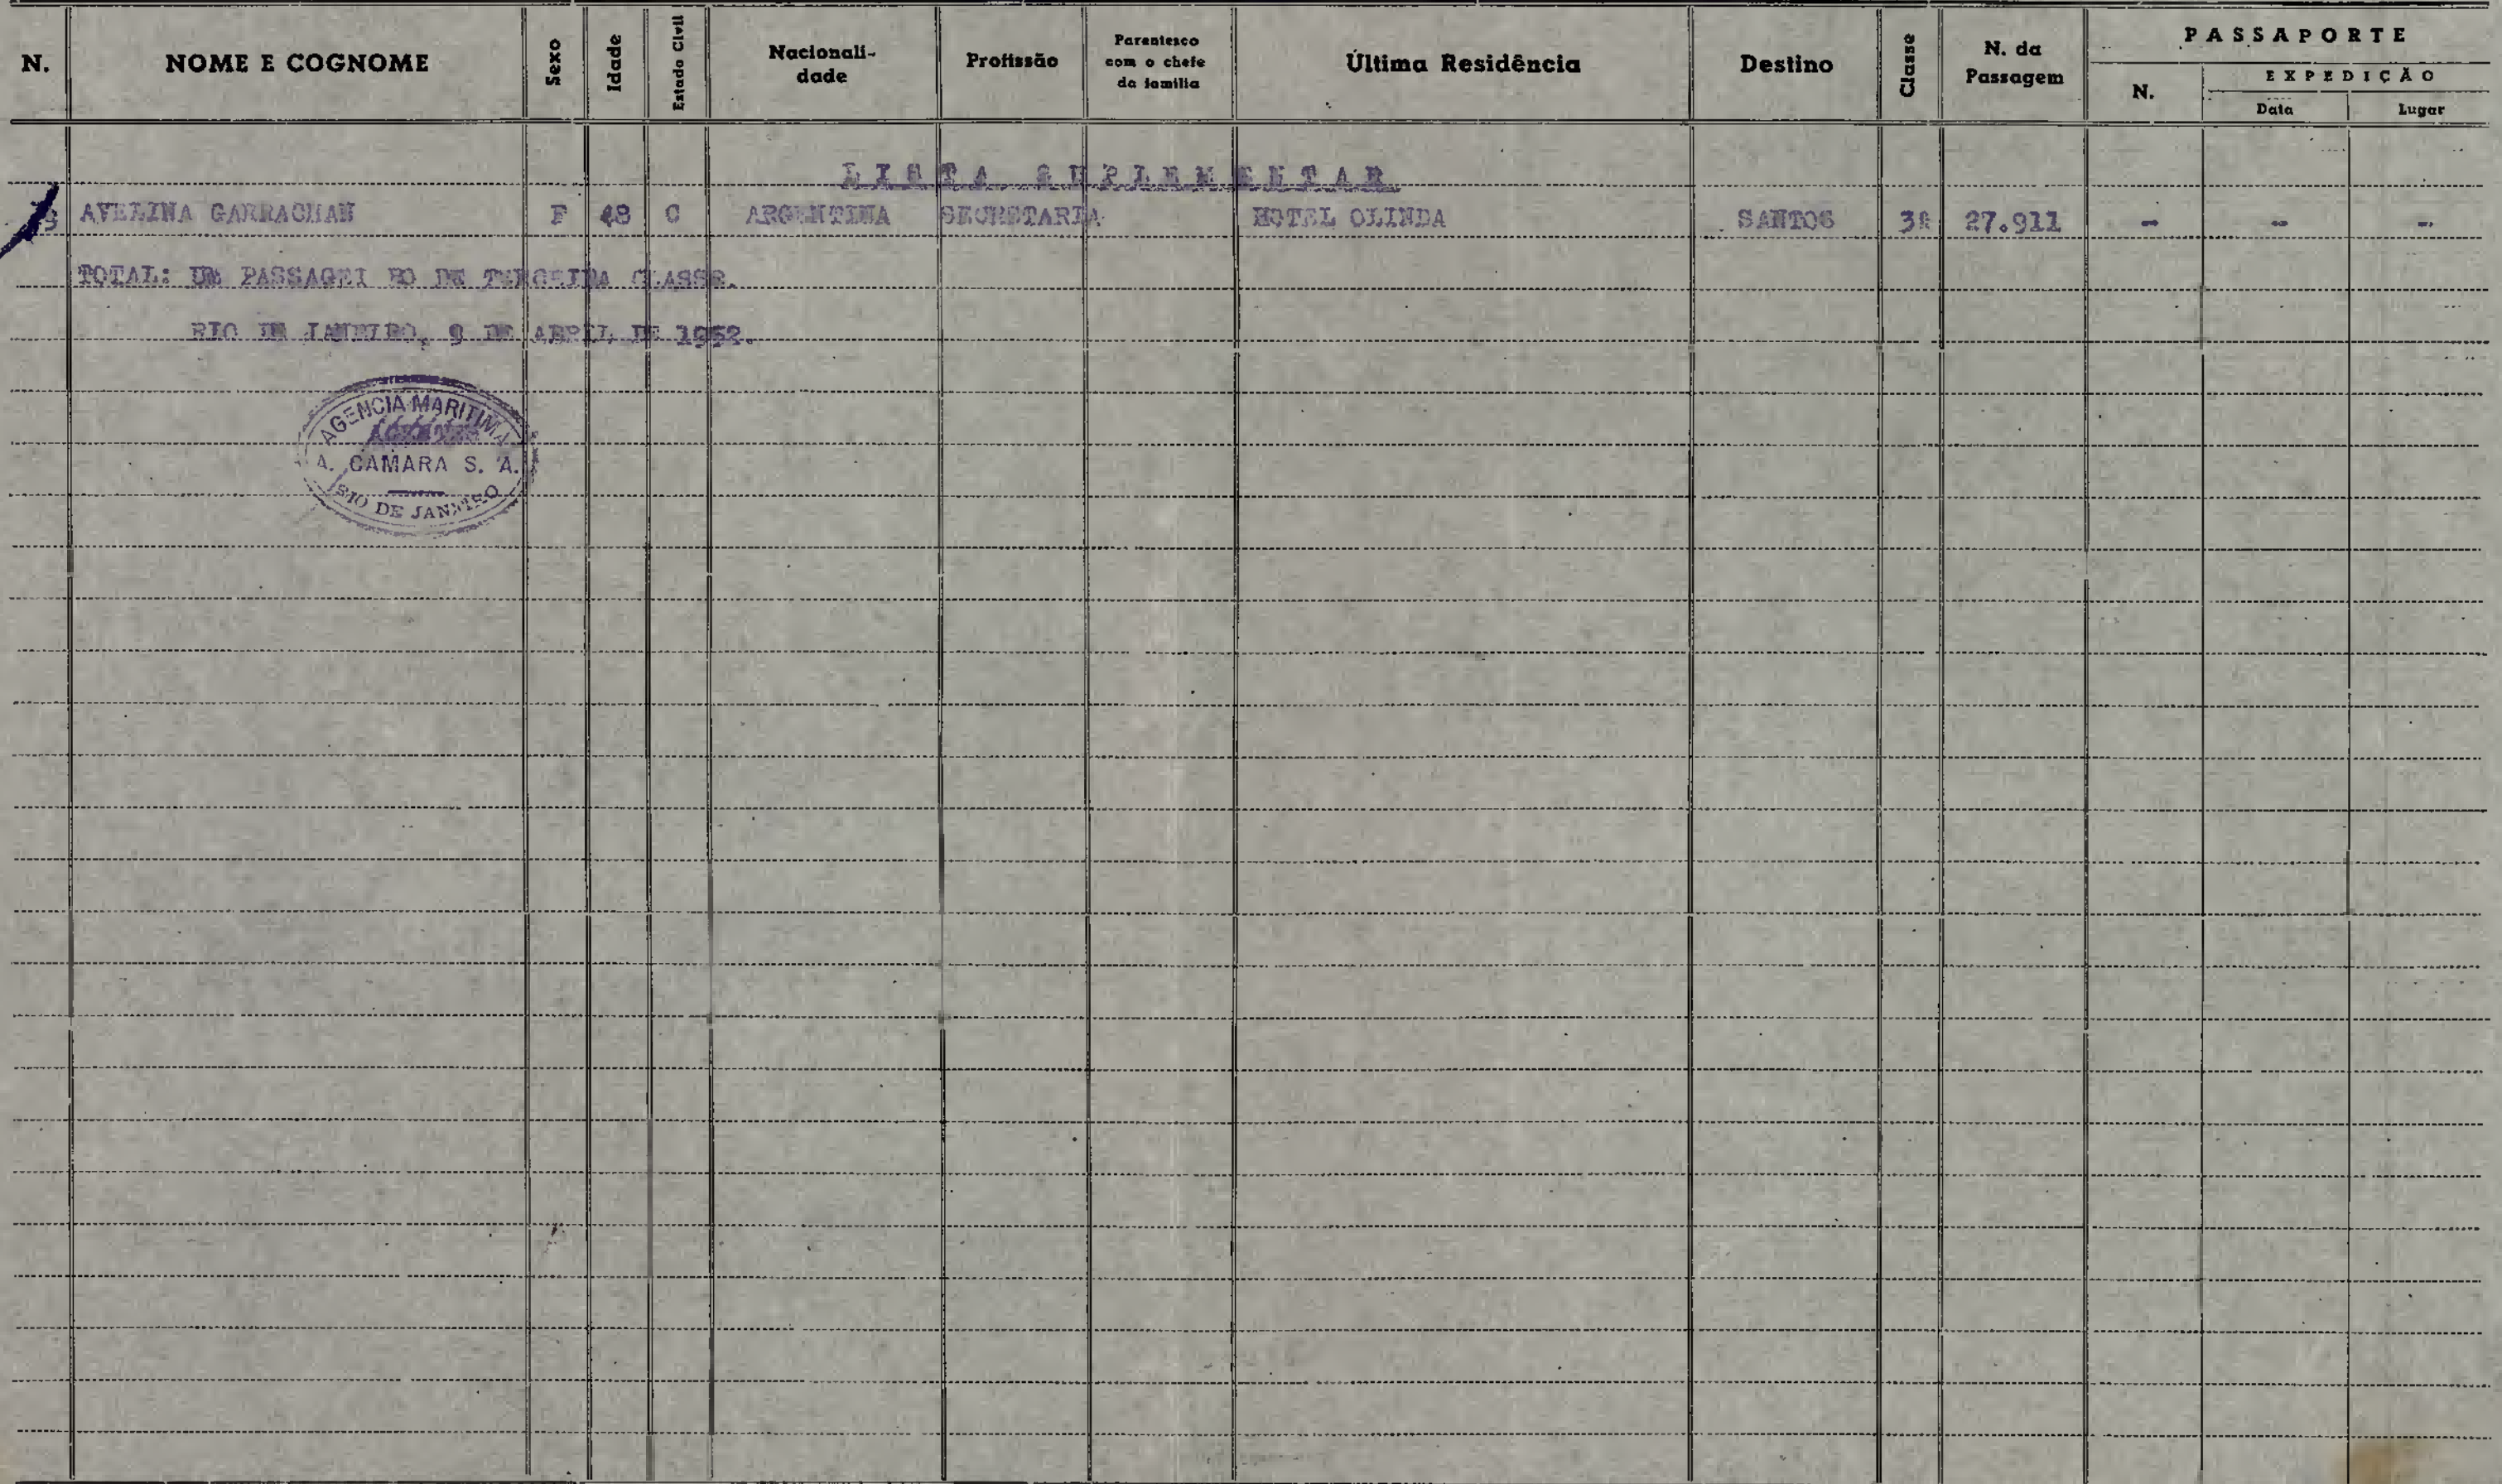 N. NOME E COGNOME Sexo Idade Estado Civil Nacionali-dade Profissão Parentesco com o chefe da familia Última Residência Destino Classe N. da Passagem PASSAPORTE
N. EXPEDIÇÃO
Data Lugar
LISTA SUPLEMENTAR
AVELINA GARRACHAN F 48 C ARGENTINA SECRETARIA HOTEL OLINDA SANTOS 3ª 27.911 - - -
TOTAL: UM PASSAGEI RO DE TERCEIRA CLASSE.
RIO DE JANEIRO, 9 DE ABRIL DE 1952.
AGENCIA MARITIMA
A. CAMARA S. A.
RIO DE JANEIRO